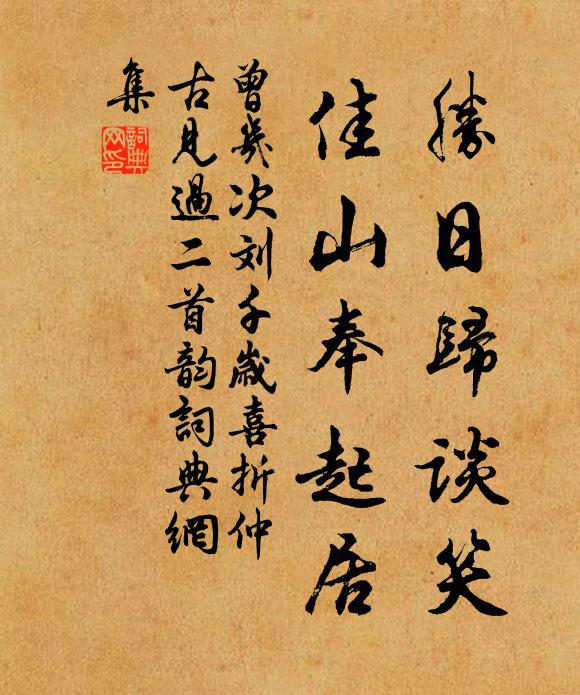 勝日歸談笑
佳山奉起居
曾幾次刘千歲喜折仲
古見過二首韵詞典網
集
詞典網印